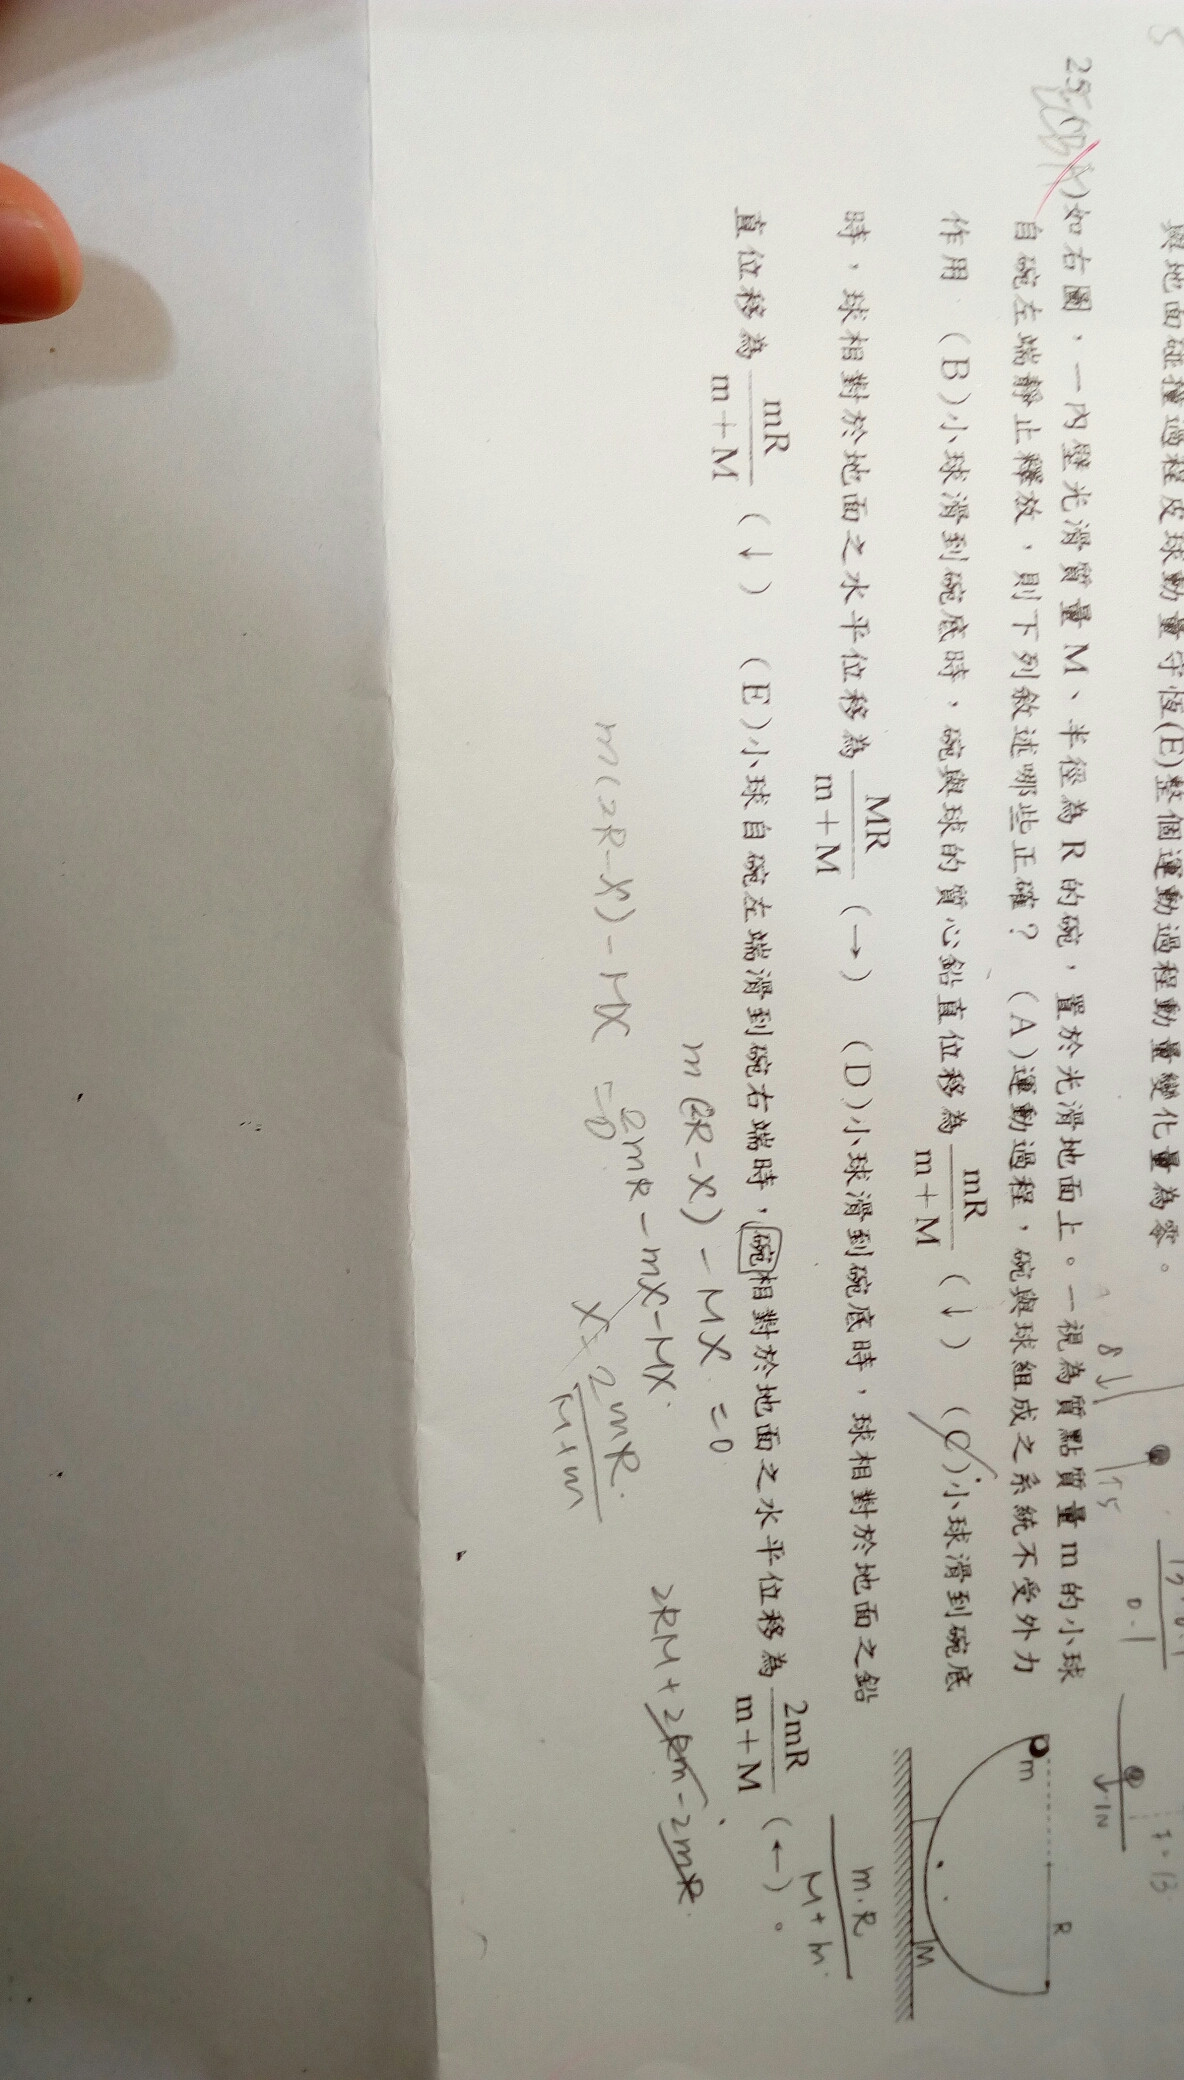 與地面碰撞過程皮球動量守恆(E)整個運動過程動量變化量為零。
25.
如右圖，一內壁光滑質量M、半徑為R的碗，置於光滑地面上。一視為質點質量m的小球
自碗左端靜止釋放，則下列敘述哪些正確？ (A)運動過程，碗與球組成之系統不受外力
作用 (B)小球滑到碗底時，碗與球的質心鉛直位移為 mR/(m+M) (↓) (C)小球滑到碗底
時，球相對於地面之水平位移為 MR/(m+M) (→) (D)小球滑到碗底時，球相對於地面之鉛
直位移為 mR/(m+M) (↓) (E)小球自碗左端滑到碗右端時，碗相對於地面之水平位移為 2mR/(m+M) (←)。
m
R
M
m·R/(M+m)
m(2R-x)-Mx=0
2mR-mx-Mx
m(2R-x)-Mx=0
x=2mR/(M+m)
2RM+2Rm-2mR